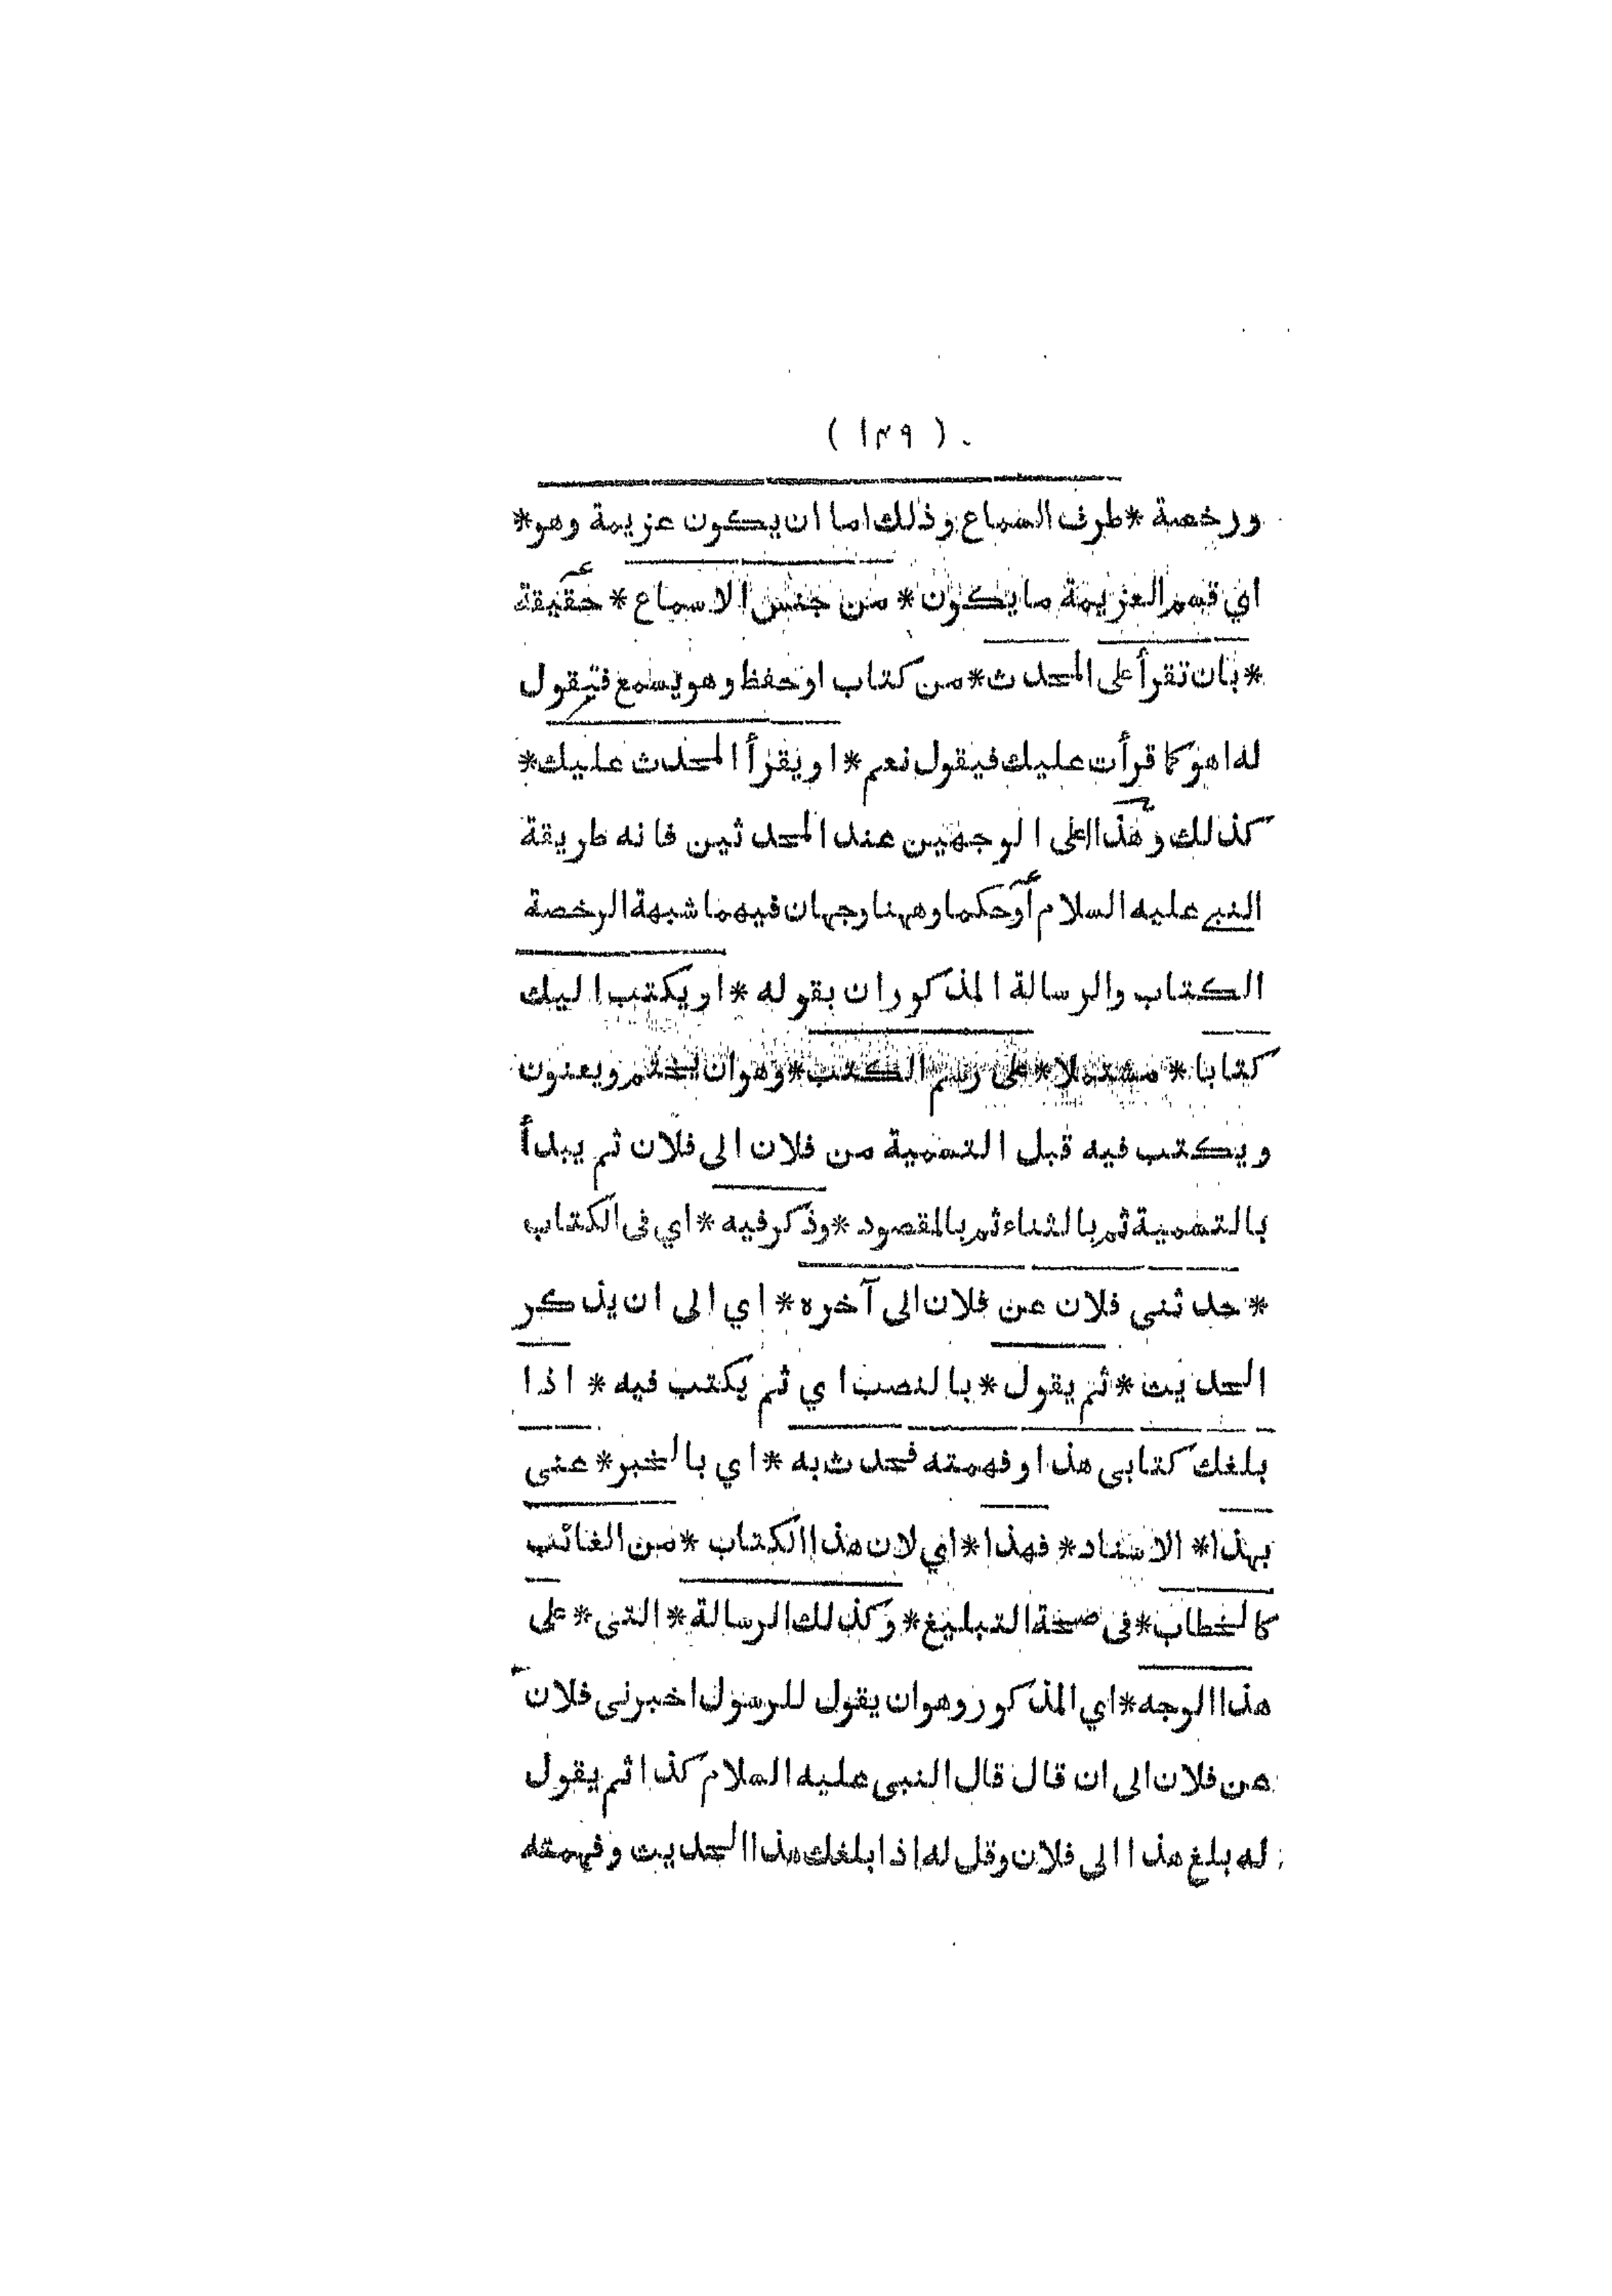 ( ١٣٩ )
ورخصة * طرف السماع وذلك اما ان يكون عزيمة وهو *
اي قسم العزيمة ما يكون * من جنس الاسماع * حقيقة
* بان تقرأ على المحدث * من كتاب او حفظ وهو يسمع فتقول
له اهو كما قرأت عليك فيقول نعم * او يقرأ المحدث عليك *
كذلك وهذا اعلى الوجهين عند المحدثين فانه طريقة
النبي عليه السلام أو حكما وههنا وجهان فيهما شبهة الرخصة
الكتاب والرسالة المذكوران بقوله * او يكتب اليك
كتابا * مشتملا * على رسم الكتب * وهو ان يختم ويعنون
ويكتب فيه قبل التسمية من فلان الى فلان ثم يبدأ
بالتسمية ثم بالثناء ثم بالمقصود * وذكر فيه * اي فى الكتاب
* حدثنى فلان عن فلان الى آخره * اي الى ان يذكر
الحديث * ثم يقول * بالنصب اي ثم يكتب فيه * اذا
بلغك كتابى هذا وفهمته فحدث به * اي بالخبر * عنى
بهذا * الاسناد * فهذا * اي لان هذا الكتاب * من الغائب
كالخطاب * فى صحة التبليغ * وكذلك الرسالة * التى * على
هذا الوجه * اي المذكور وهو ان يقول للرسول اخبرنى فلان
عن فلان الى ان قال قال النبى عليه السلام كذا ثم يقول
له بلغ هذا الى فلان وقل له اذا بلغك هذا الحديث وفهمته